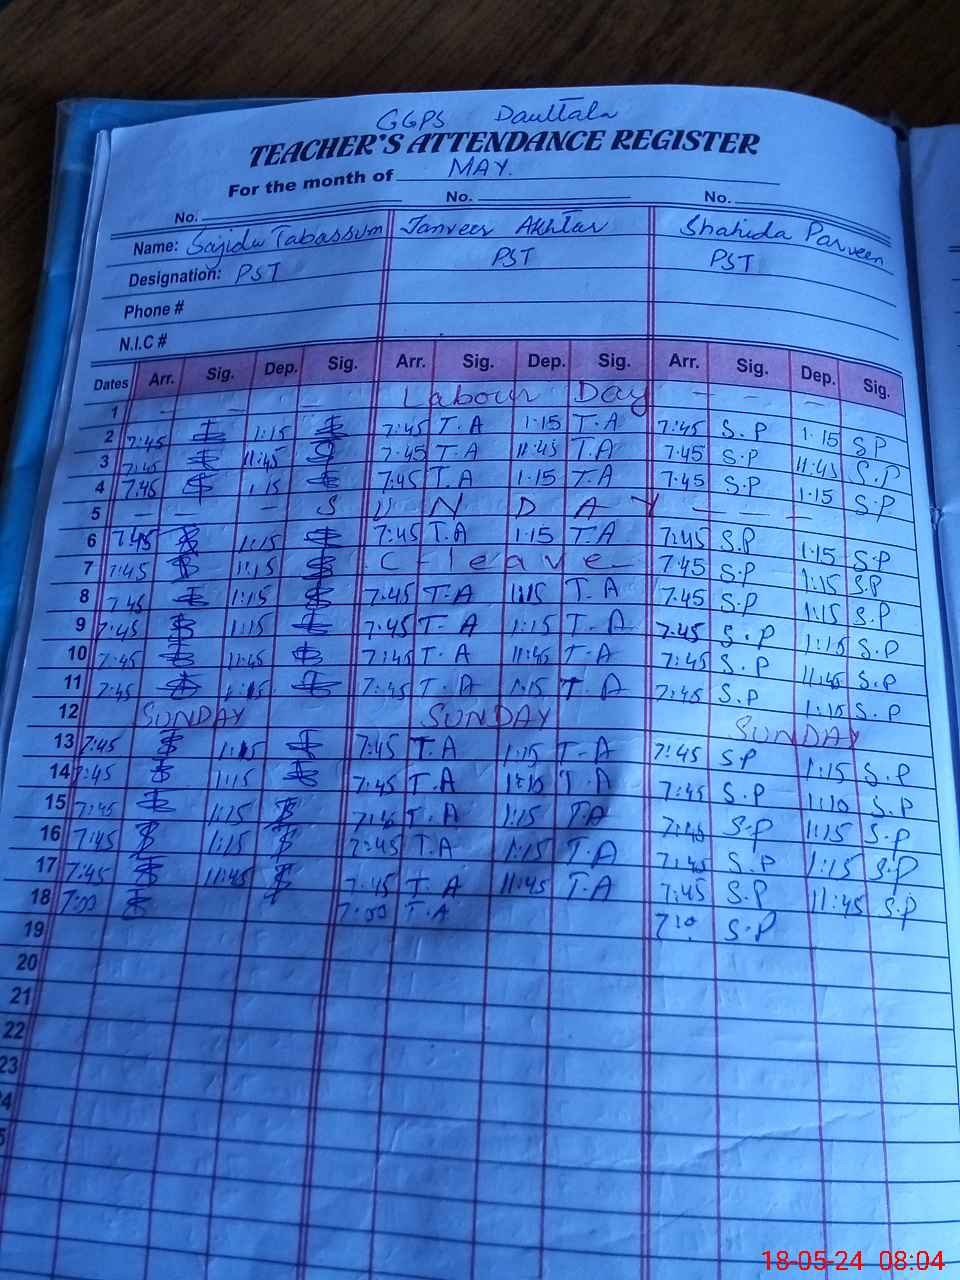 GGPS Daultala
TEACHER'S ATTENDANCE REGISTER
For the month of MAY.
No. No. No.
Name: Sajida Tabassum Tanveer Akhtar Shahida Parveen
Designation: PST PST PST
Phone #
N.I.C #
Dates Arr. Sig. Dep. Sig. Arr. Sig. Dep. Sig. Arr. Sig. Dep. Sig.
1 - - - Labour Day - - - -
2 7:45 1:15 7:45 T.A 1:15 T.A 7:45 S.P 1:15 S.P
3 7:45 11:45 7:45 T.A 11:45 T.A 7:45 S.P 11:45 S.P
4 7:45 1:15 7:45 T.A 1:15 T.A 7:45 S.P 1:15 S.P
5 - - - S U N D A Y - - - -
6 7:45 1:15 7:45 T.A 1:15 T.A 7:45 S.P 1:15 S.P
7 7:45 1:15 C-leave- 7:45 S.P 1:15 S.P
8 7:45 1:15 7:45 T.A 1:15 T.A 7:45 S.P 1:15 S.P
9 7:45 1:15 7:45 T.A 1:15 T.A 7:45 S.P 1:15 S.P
10 7:45 11:45 7:45 T.A 11:45 T.A 7:45 S.P 11:45 S.P
11 7:45 1:15 7:45 T.A 1:15 T.A 7:45 S.P 1:15 S.P
12 SUNDAY SUNDAY SUNDAY
13 7:45 1:15 7:45 T.A 1:15 T.A 7:45 S.P 1:15 S.P
14 7:45 1:15 7:45 T.A T.A 7:45 S.P 1:10 S.P
15 7:45 1:15 T.A 1:15 TA S.P 1:15 S.P
16 7:45 1:15 7:45 T.A 1:15 T.A 7:45 S.P 1:15 S.P
17 7:45 11:45 7:45 T.A 11:45 T.A 7:45 S.P 11:45 S.P
18 7:00 7:00 T.A S.P
19
20
21
22
23
18-05-24 08:04